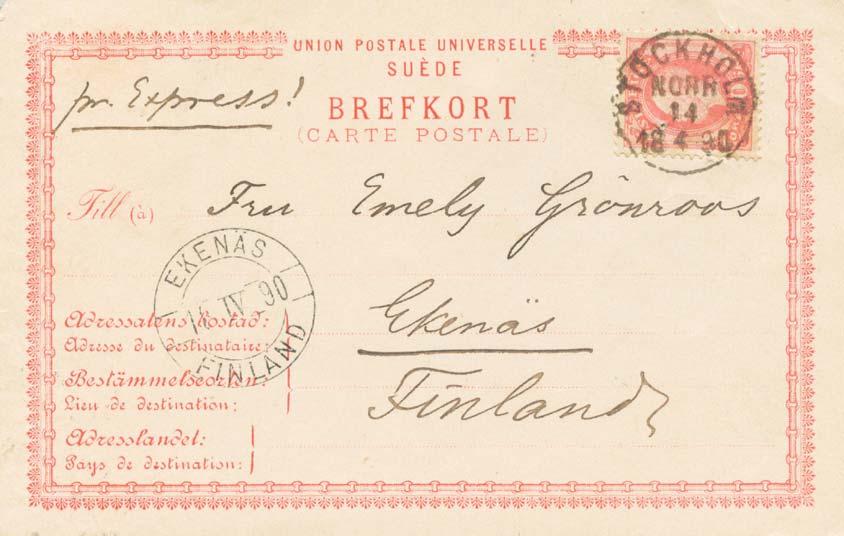 UNION POSTALE UNIVERSELLE
SUÈDE
pr. Express!
BREFKORT
(CARTE POSTALE)
STOCKHOLM
NORR
14
18 4 90
Till (à) Fru Emely Grönroos
EKENÄS
IV 90
FINLAND
Adressatens bostad:
Adresse du destinataire:
Ekenäs
Bestämmelseorten:
Lieu de destination:
Finland
Adresslandet:
Pays de destination: